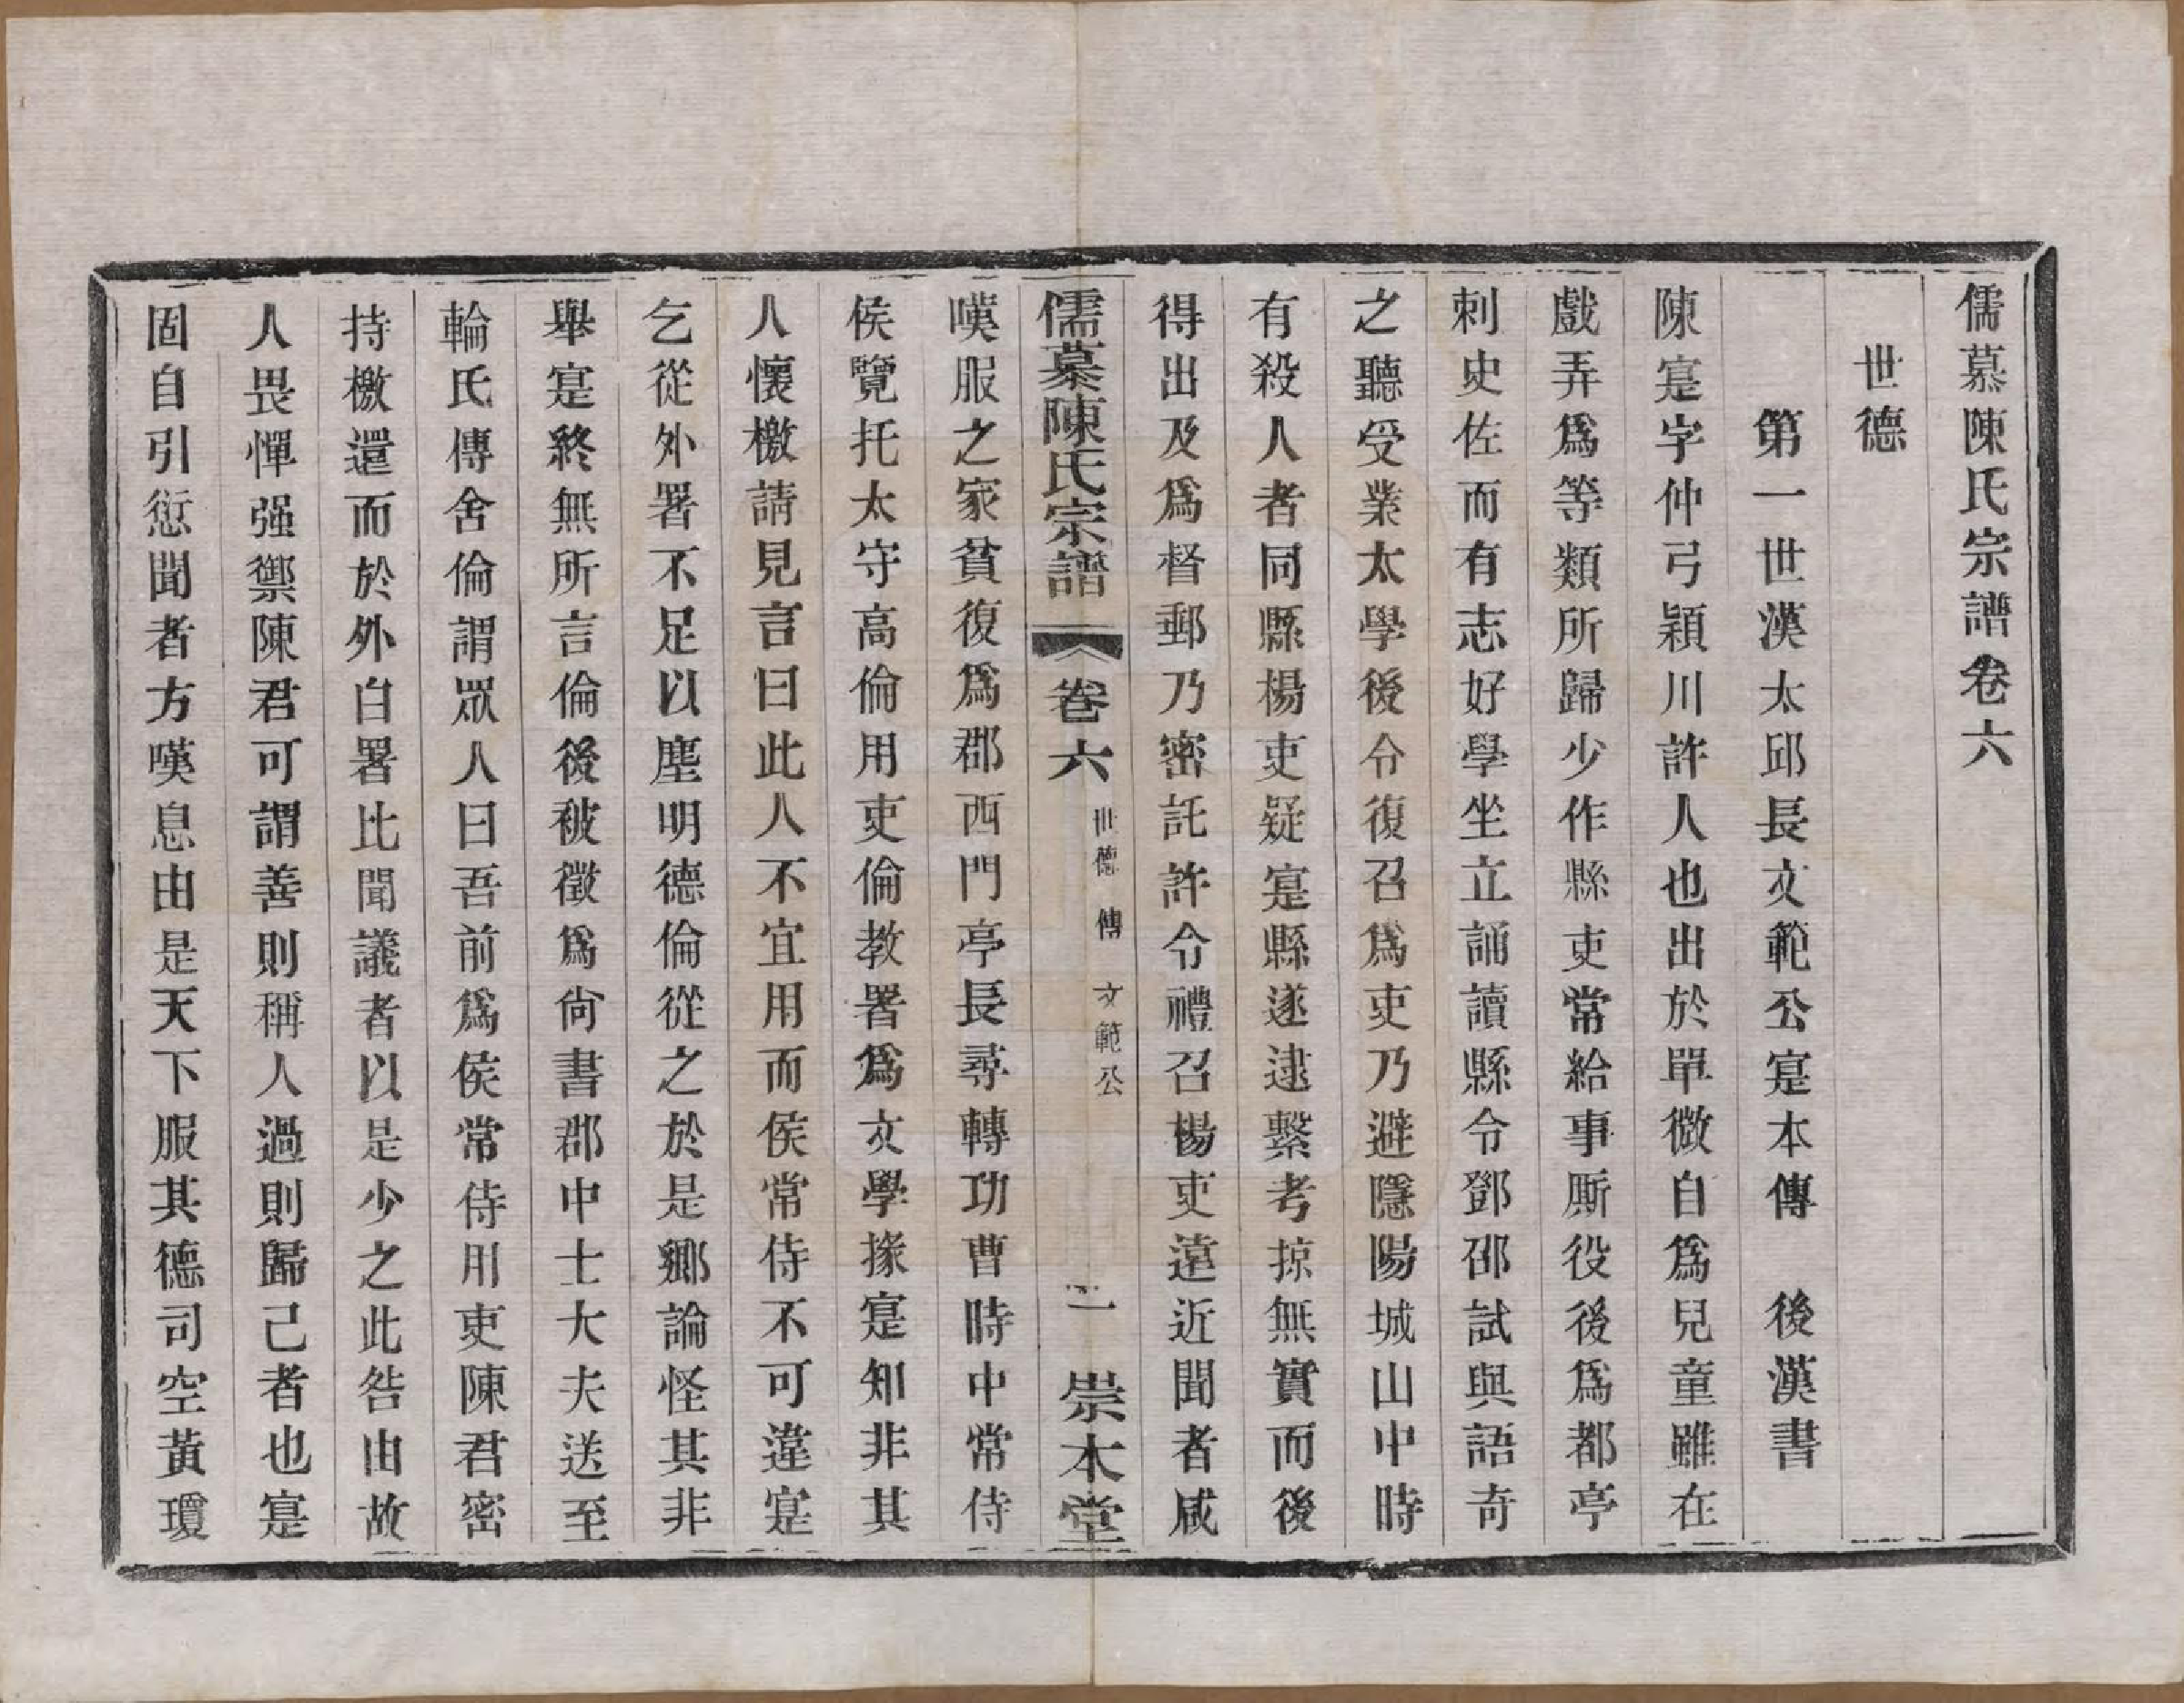 儒慕陳氏宗譜卷六
世德
第一世漢太邱長文範公寔本傳 後漢書
陳寔字仲弓潁川許人也出於單微自爲兒童雖在
戲弄爲等類所歸少作縣吏常給事厮役後爲都亭
刺史佐而有志好學坐立誦讀縣令鄧邵試與語奇
之聽受業太學後令復召爲吏乃避隱陽城山中時
有殺人者同縣楊吏疑寔縣遂逮繫考掠無實而後
得出及爲督郵乃密託許令禮召楊吏遠近聞者咸
儒慕陳氏宗譜 卷六 世德 傳 文範公 一 崇本堂
嘆服之家貧復爲郡西門亭長尋轉功曹時中常侍
侯覽托太守高倫用吏倫教署爲文學掾寔知非其
人懷檄請見言曰此人不宜用而侯常侍不可違寔
乞從外署不足以塵明德倫從之於是鄉論怪其非
舉寔終無所言倫後被徵爲尙書郡中士大夫送至
輪氏傳舍倫謂眾人曰吾前爲侯常侍用吏陳君密
持檄還而於外白署比聞議者以是少之此咎由故
人畏憚强禦陳君可謂善則稱人過則歸己者也寔
固自引愆聞者方嘆息由是天下服其德司空黃瓊